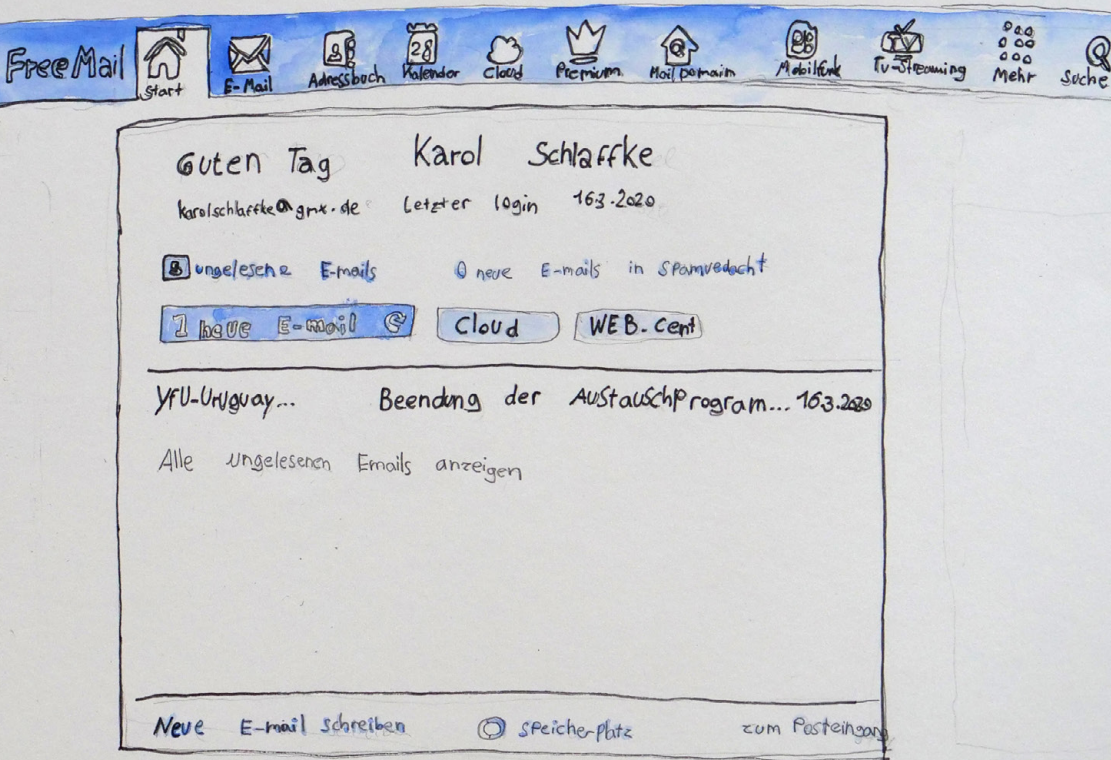 FreeMail Start E-Mail Adressbuch 28 Kalender Cloud Premium Mail Domain Mobilfunk Tv-Streaming Mehr Suche
Guten Tag Karol Schlaffke
karolschlaffke@gmx.de Letzter login 16.3.2020
8 ungelesene E-mails 0 neue E-mails in Spamvedacht
1 neue E-mail Cloud WEB.Cent
YFU-Uruguay... Beendung der Austauschprogram... 16.3.2020
Alle ungelesenen Emails anzeigen
Neue E-mail schreiben Speicherplatz zum Posteingang